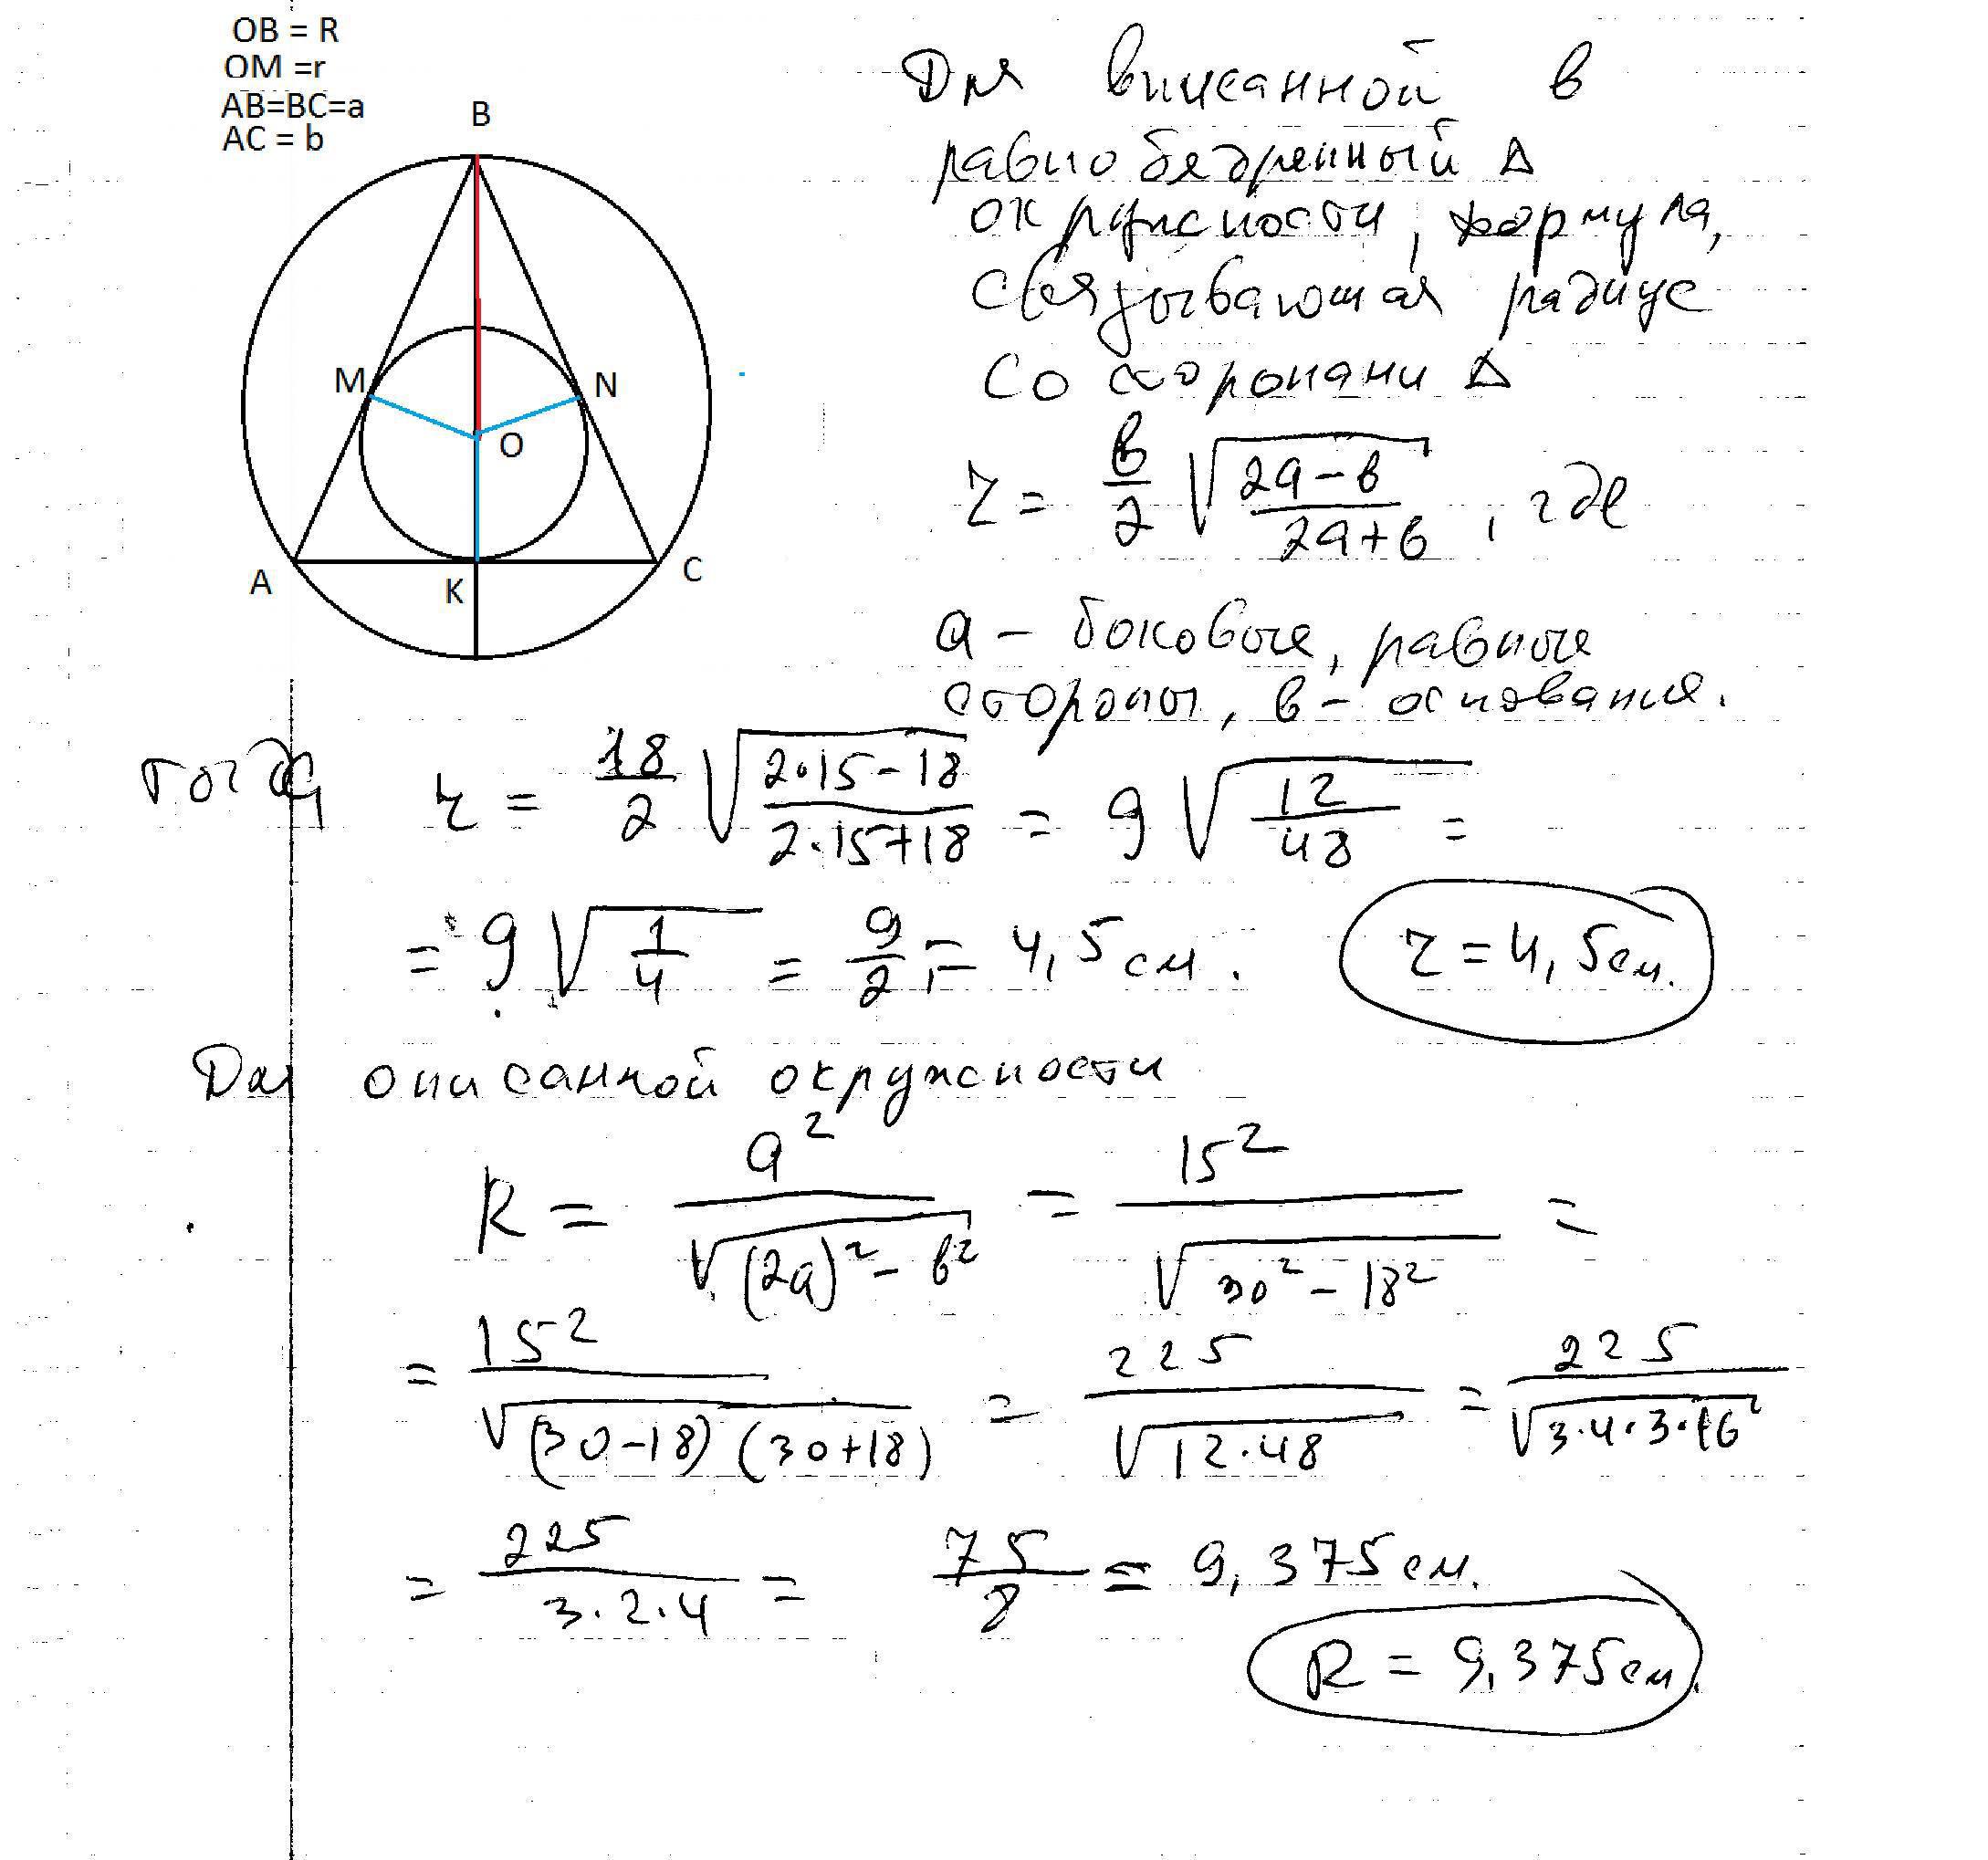 OB = R
OM =r
AB=BC=a
AC = b
B
M
N
O
A
K
C
Для вписанной в
равнобедренный Δ
окружности, формула,
связывающая радиус
со сторонами Δ
r = в/2 √((2a-в)/(2a+в)), где
a - боковые, равные
стороны, в - основания.
тогда r = 18/2 √((2·15-18)/(2·15+18)) = 9 √(12/48) =
= 9 √(1/4) = 9/2 = 4,5 см.
r = 4,5 см.
Для описанной окружности
R = a²/√((2a)² - в²) = 15²/√(30² - 18²) =
= 15²/√((30-18)(30+18)) = 225/√(12·48) = 225/√(3·4·3·16)
= 225/(3·2·4) = 75/8 = 9,375 см.
R = 9,375 см.